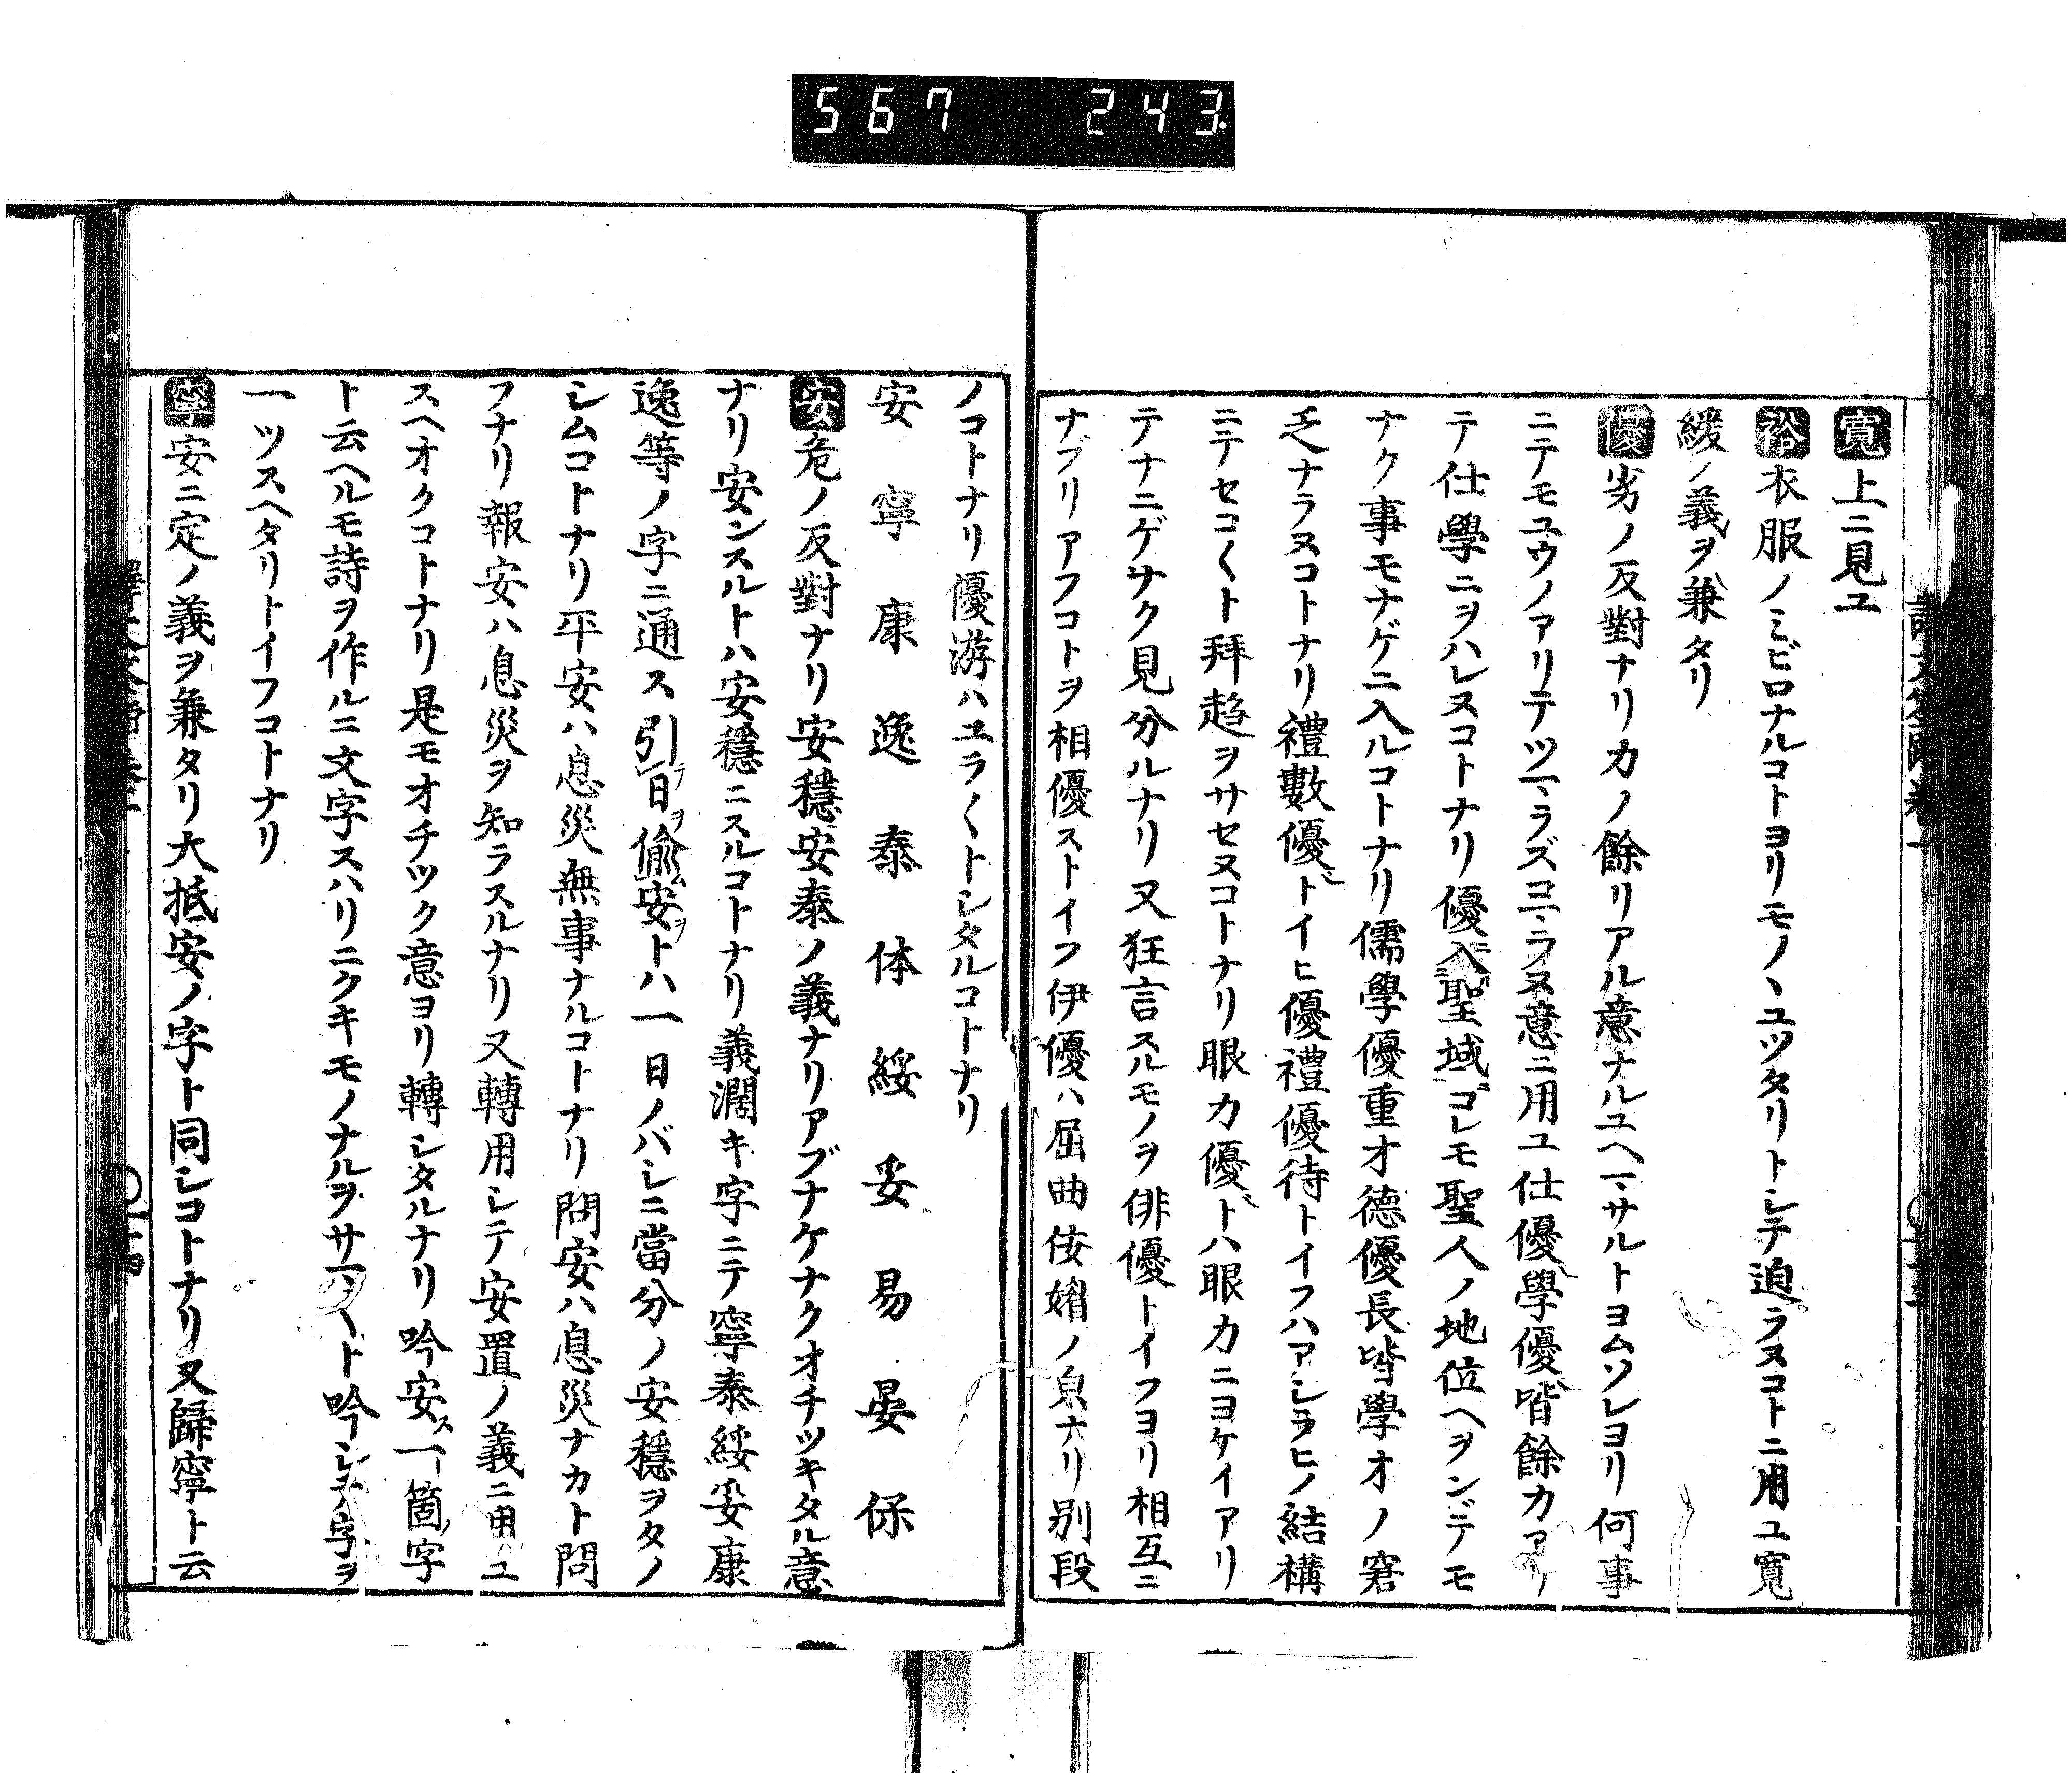 567 243.
寛上ニ見ユ
裕衣服ノミビロナルコトヨリモノヽユツタリトシテ迫ラヌコトニ用ユ寛
緩ノ義ヲ兼タリ
優劣ノ反對ナリカノ餘リアル意ナルユヘマサルトヨムソレヨリ何事
ニテモユウノアリテツマラズヨコラヌ意ニ用ユ仕優學優皆餘力アリ
テ仕學ニヲハレヌコトナリ優入聖域コレモ聖人ノ地位ヘヲンデテモ
ナク事モナゲニ入ルコトナリ儒學優重才德優長皆學才ノ窘
乏ナラヌコトナリ禮數優トイヒ優禮優待トイフハアシラヒノ結構
ニテセコ〱ト拜趋ヲサセヌコトナリ眼力優トハ眼力ニヨケイアリ
テナニゲサク見分ルナリ又狂言スルモノヲ俳優トイフヨリ相互ニ
ナブリアフコトヲ相優ストイフ伊優ハ屈曲侫媚ノ皃ナリ別段
ノコトナリ優游ハユラ〱トシタルコトナリ
安寧康逸泰体綏妥易晏保
安危ノ反對ナリ安穩安泰ノ義ナリアブナケナクオチツキタル意
ナリ安ンスルトハ安穩ニスルコトナリ義濶キ字ニテ寧泰綏妥康
逸等ノ字ニ通ス引テ日ヲ偸ム安ヲトハ一日ノバシニ當分ノ安穩ヲタノ
シムコトナリ平安ハ息災無事ナルコトナリ問安ハ息災ナカト問
フナリ報安ハ息災ヲ知ラスルナリ又轉用シテ安置ノ義ニ用ユ
スヘオクコトナリ是モオチツク意ヨリ轉シタルナリ吟安ス一箇ノ字
ト云ヘルモ詩ヲ作ルニ文字スハリニクキモノナルヲサマ〱ト吟シテ字ヲ
一ツスヘタリトイフコトナリ
寧安ニ定ノ義ヲ兼タリ大抵安ノ字ト同シコトナリ又歸寧ト云